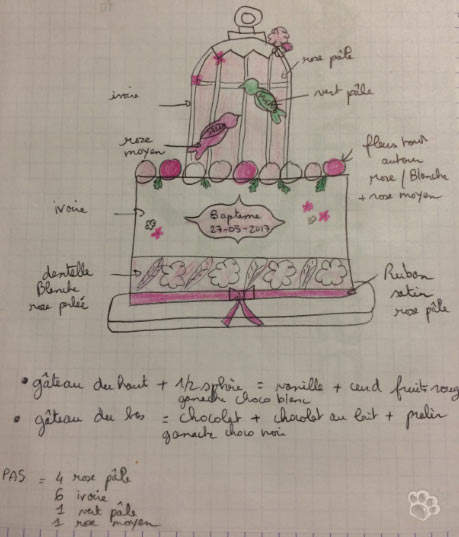 rose pâle
ivoire
vert pâle
rose
moyen
fleurs tout
autour
rose / Blanche
+ rose moyen
ivoire
Baptême
27-05-2017
dentelle
Blanche
rose
Ruban
satin
rose pâle
• gâteau du haut + 1/2 sphère = vanille + fruits rouge
ganache choco blanc
• gâteau du bas = chocolat + chocolat au lait + pralin
ganache choco noir
PAS = 4 rose pâle
6 ivoire
1 vert pâle
1 rose moyen